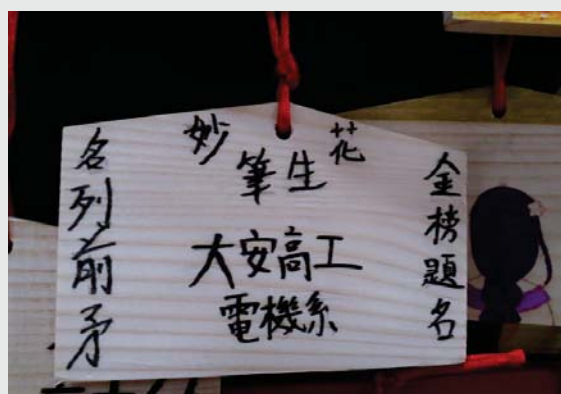 金榜題名
妙筆生花
大安高工
電機系
名列前矛